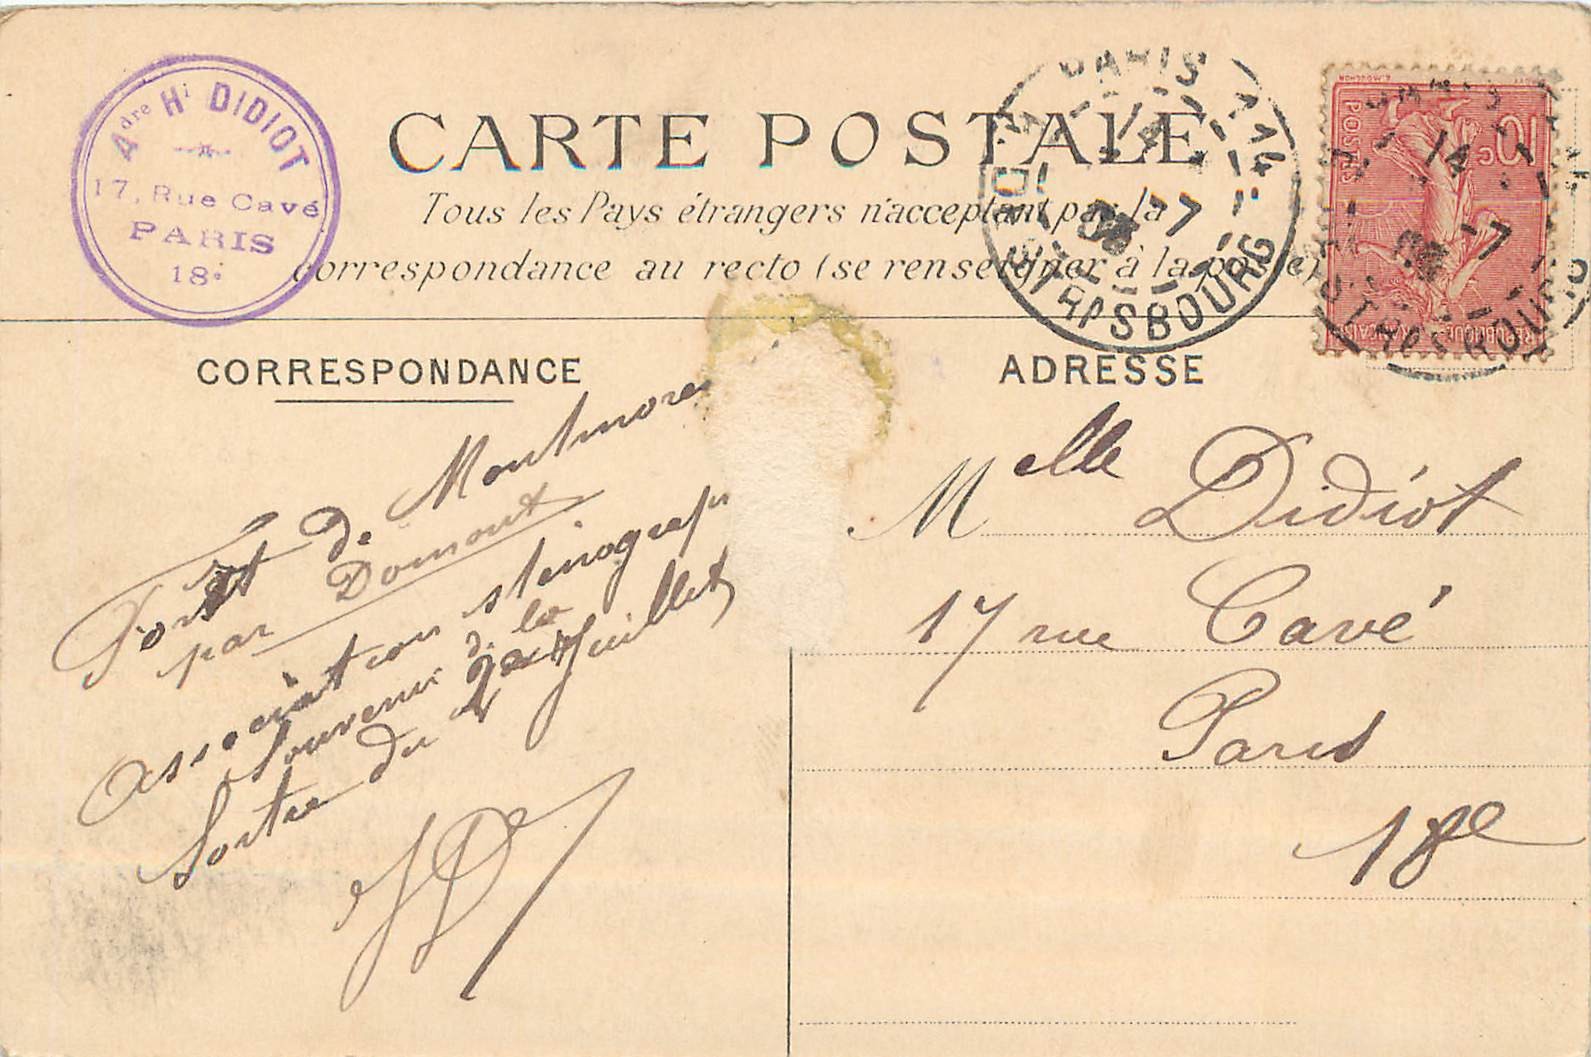 Adre Hi DIDIOT
17, Rue Cavé
PARIS
18e
CARTE POSTALE
Tous les Pays étrangers n'acceptent pas la
correspondance au recto (se renseigner à la poste)
PARIS 114
14
7
08
STRASBOURG
10c
POSTES
RÉPUBLIQUE FRANÇAISE
CORRESPONDANCE
ADRESSE
Forêt de Montmorency
par Domont
association sténograph
Souvenir de la
Sortie du 2 Juillet
HD
Melle Didiot
17 rue Cavé
Paris
18e